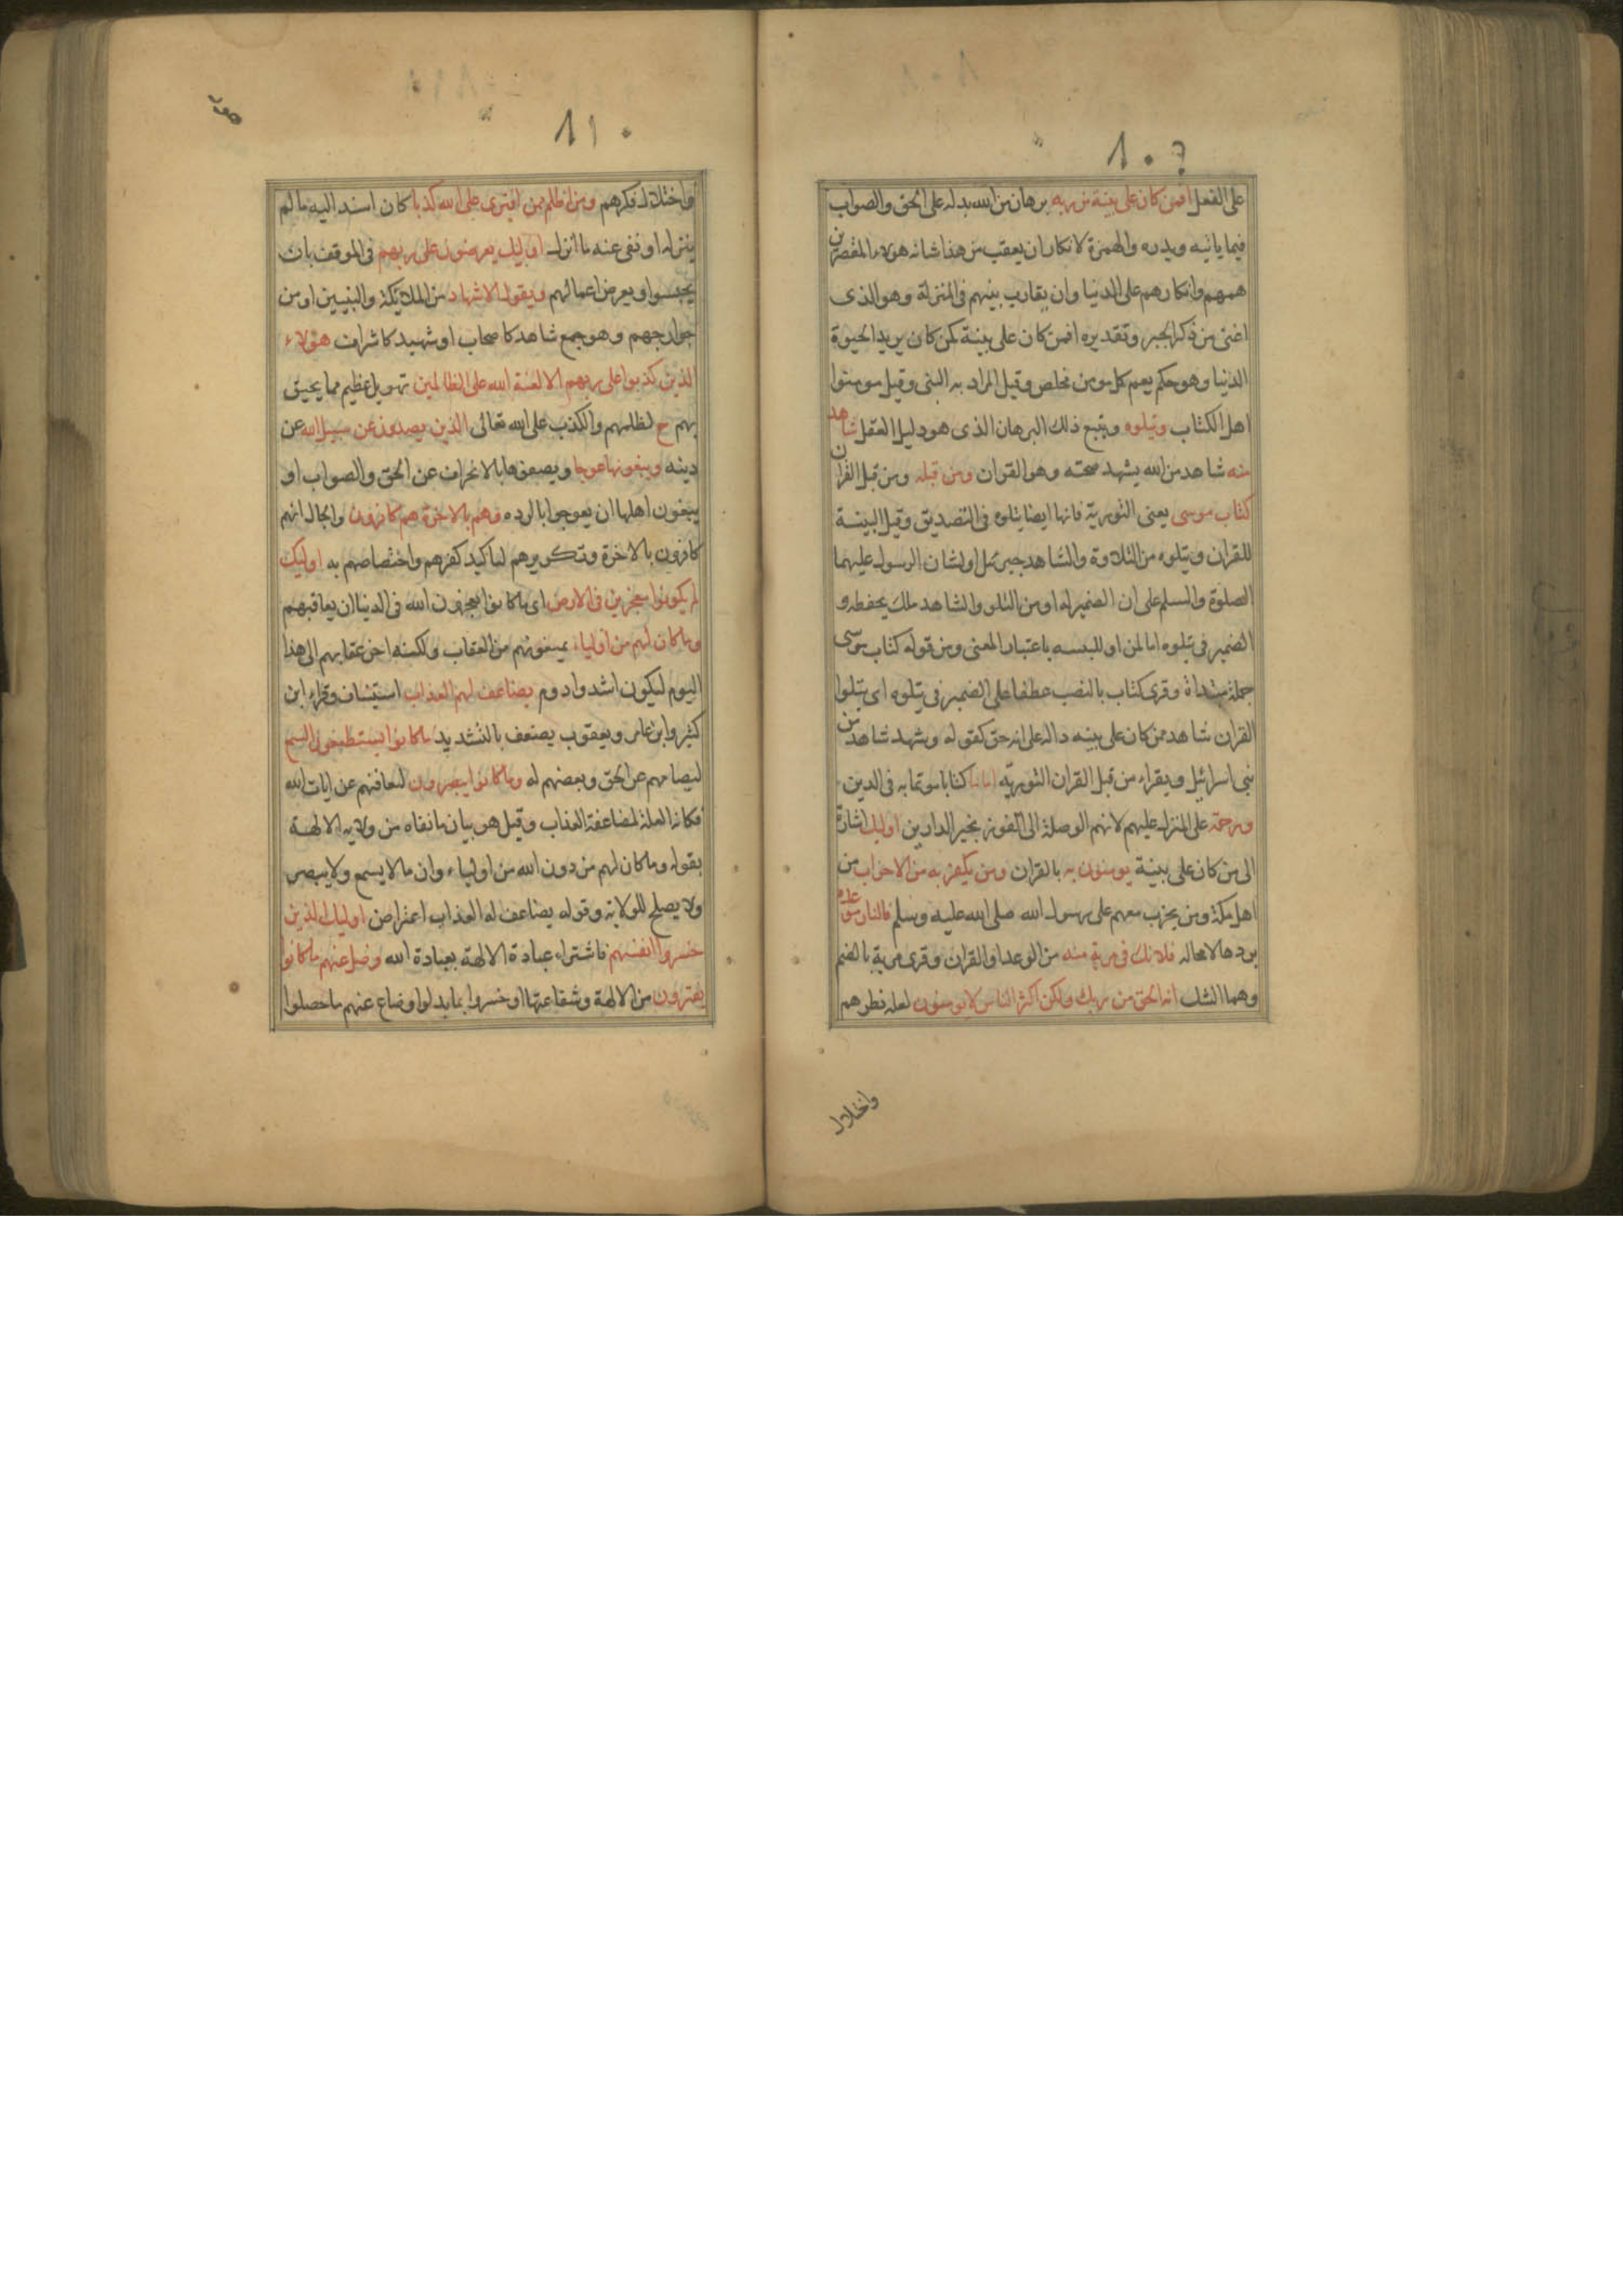 ١٠٩
على الفعل افمن كان على بينة من ربه برهان من الله يدله على الحق والصواب
فيما ياتيه ويذره والهمزة لانكار ان يعقب من هذا شانه هؤلاء المقصرين
هممهم وافكارهم على الدنيا وان يقارب بينهم فى المنزلة وهو الذى
اغنى عن ذكر الخبر وتقديره افمن كان على بينة كمن كان يريد الحيوة
الدنيا وهو حكم يعم كل مومن مخلص وقيل المراد به النبى وقيل مومنوا
اهل الكتاب ويتلوه ويتبع ذلك البرهان الذى هو دليل العقل شاهد
منه شاهد من الله يشهد صحته وهو القران ومن قبله ومن قبل القران
كتاب موسى يعنى التورية فانها ايضا يتلوه فى التصديق وقيل البينة
للقران ويتلوه من التلاوة والشاهد جبرئل او لسان الرسول عليهما
الصلوة والسلم على ان الضمير له او من التلو والشاهد ملك يحفظه و
الضمير فى يتلوه اما لمن او للبينه باعتبار المعنى ومن قوله كتاب موسى
جملة مبتداة وقرى كتاب بالنصب عطفا على الضمير فى يتلوه اى يتلوا
القران شاهد ممن كان على بينه داله على انه حق كقوله وشهد شاهد من
بنى اسرائيل ويقراء من قبل القران التوريّه اماما كتابا موتما به فى الدين
ورحمة على المنزل عليهم لانهم الوصلة الى الفوز بخير الدارين اوليك اشارة
الى من كان على بينة يومنون به بالقران ومن يكفر به من الاحزاب من
اهل مكة ومن يحزب معهم على رسول الله صلى الله عليه وسلم فالنار موعده
يردها لا محاله فلا تك فى مرية منه من الموعد او القران وقرى مرية بالضم
وهما الشك انه الحق من ربك ولكن اكثر الناس لا يومنون لعله نظرهم
واختلال
١١٠
واختلال فكرهم ومن اظلم ممن افترى على الله كذبا كان اسند اليه ما لم
ينزله او نفى عنه ما انزل اوليك يعرضون على ربهم فى الموقف بان
يحبسوا ويعرض اعمالهم ويقول الاشهاد من الملائكة والنبيين او من
جوارجهم وهو جمع شاهد كاصحاب او شهيد كاشراف هؤلاء
الذين كذبوا على ربهم الا لعنة الله على الظالمين تهويل عظيم مما يحيق
بهم ح لظلمهم والكذب على الله تعالى الذين يصدون عن سبيل الله عن
دينه ويبغونها عوجا ويصفونها بالانحراف عن الحق والصواب او
يبغون اهلها ان يعوجوا بالرده وهم بالاخرة هم كافرون والحال انهم
كافرون بالاخرة وتكريرهم لتاكيد كفرهم واختصاصهم به اوليك
لم يكونوا معجزين فى الارض اى ما كانوا يعجزون الله فى الدنيا ان يعاقبهم
وما كان لهم من اولياء يمنعونهم من العقاب ولكنه اخر عقابهم الى هذا
اليوم ليكون اشد وادوم يضاعف لهم العذاب استيناف وقراء ابن
كثير وابن عامر ويعقوب يضعف بالتشديد ما كانوا يستطيعون السمع
لتصامهم عن الحق وبعضهم له وما كانوا يبصرون لتعافيهم عن ايات الله
فكانه العلة لمضاعفة العذاب وقيل هو بيان ما نفاه من ولايه الالهة
بقوله وما كان لهم من دون الله من اولياء وان ما لا يسمع ولا يبصر
ولا يصلح للولايه وقوله يضاعف له العذاب اعتراض اوليك الذين
خسروا انفسهم فاشتراء عبادة الالهة بعبادة الله وضل عنهم ما كانوا
يفترون من الالهة وشفاعتها او خسروا بما بدلوا وضاع عنهم ما حصلوا